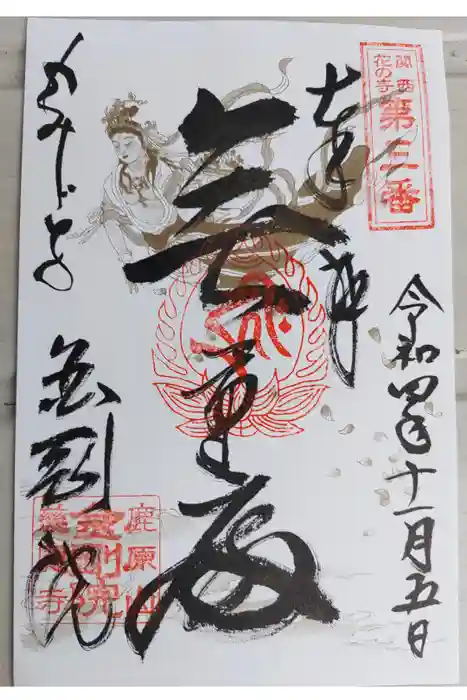 関西
花の寺
第三番
奉拝
令和四年十一月五日
無量
もみじ寺
金剛院
鹿原山
金剛院
慈恩寺